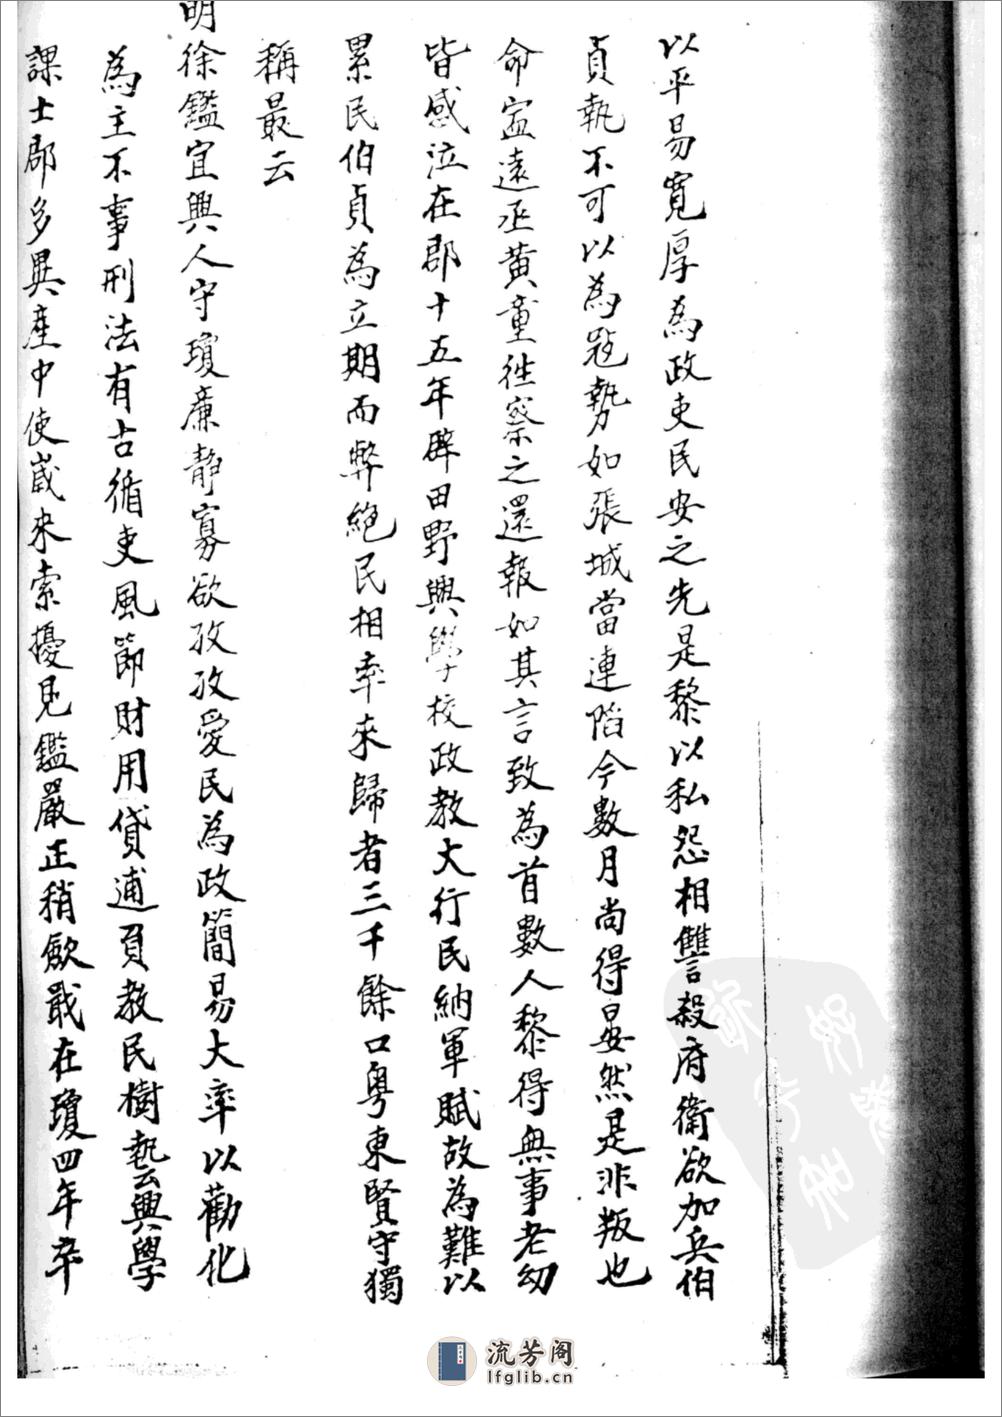 以平易寬厚為政吏民安之先是黎以私怨相讐殺府衛欲加兵伯
貞執不可以為冦勢如張城當連陷今數月尚得晏然是非叛也
命寍遠丞黃童徃察之還報如其言致為首數人黎得無事老幼
皆感泣在郡十五年辟田野興學校政教大行民納軍賦故為難以
累民伯貞為立期而弊絕民相率來歸者三千餘口粵東賢守獨
稱最云
明徐鑑宜興人守瓊廉靜寡欲孜孜愛民為政簡易大率以勸化
為主不事刑法有古循吏風節財用貸逋負教民樹藝興學
課士郡多異產中使歲來索擾見鑑嚴正稍歛戢在瓊四年卒
流芳阁
lfglib.cn